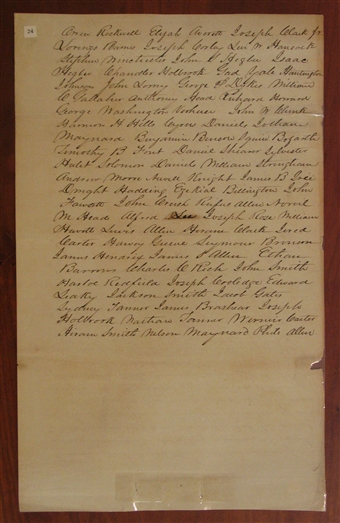 24
Orrin Rockwell Elijah Averett Joseph Clark Jr
Lorenzo Burns Joseph Levi W Hancock
Stephen Winchester John S Higbee Isaac
Higbee Chandler Holbrook Gad Yale Huntington
Johnson John Lowry George P Dykes William
C Gallaher Anthony Head Titus
George Washington John W Clark
Harmon H Hills Cyrus Daniels Isaiah
Maynard Benjamin Benson Squire Bozarth
Timothy B Foot Daniel Shearer Sylvester
Hulet Solomon Daniels William Stringham
Andrew Moore Newell Knight James B
Dwight Harding Ezekiel Billington John
Fawcett John Rufus Allen Norvil
M Head Alfred Lee Joseph Rose William
Hewitt Lewis Allen Hiram Clark Jared
Carter Harvey Green Seymour Brunson
James Hendrix James S Allen Ethan
Barrows Charles C Rich John Smith
Harlow Redfield Joseph Coolidge Edward
Leaky Jackson Smith Jacob Gates
Sydney Tanner James Brashear Joseph
Holbrook Nathan Tanner Carter
Hiram Smith Nelson Maynard Allen